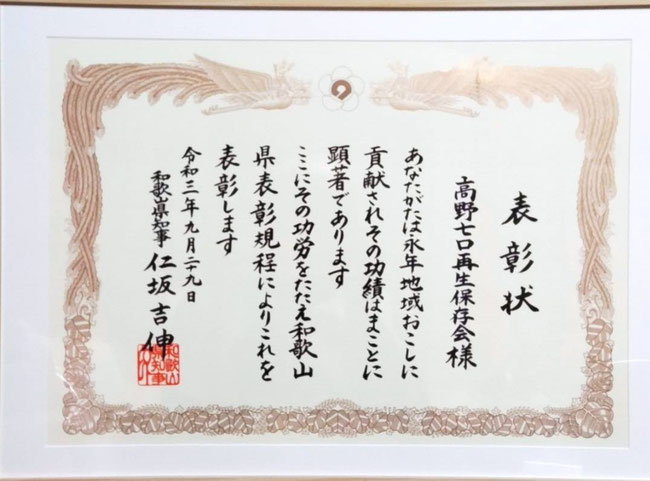 表彰状
高野七口再生保存会様
あなたがたは永年地域おこしに
貢献されその功績はまことに
顕著であります
ここにその功労をたたえ和歌山
県表彰規程によりこれを
表彰します
令和三年九月二十九日
和歌山県知事 仁坂吉伸
和歌山県知事之印